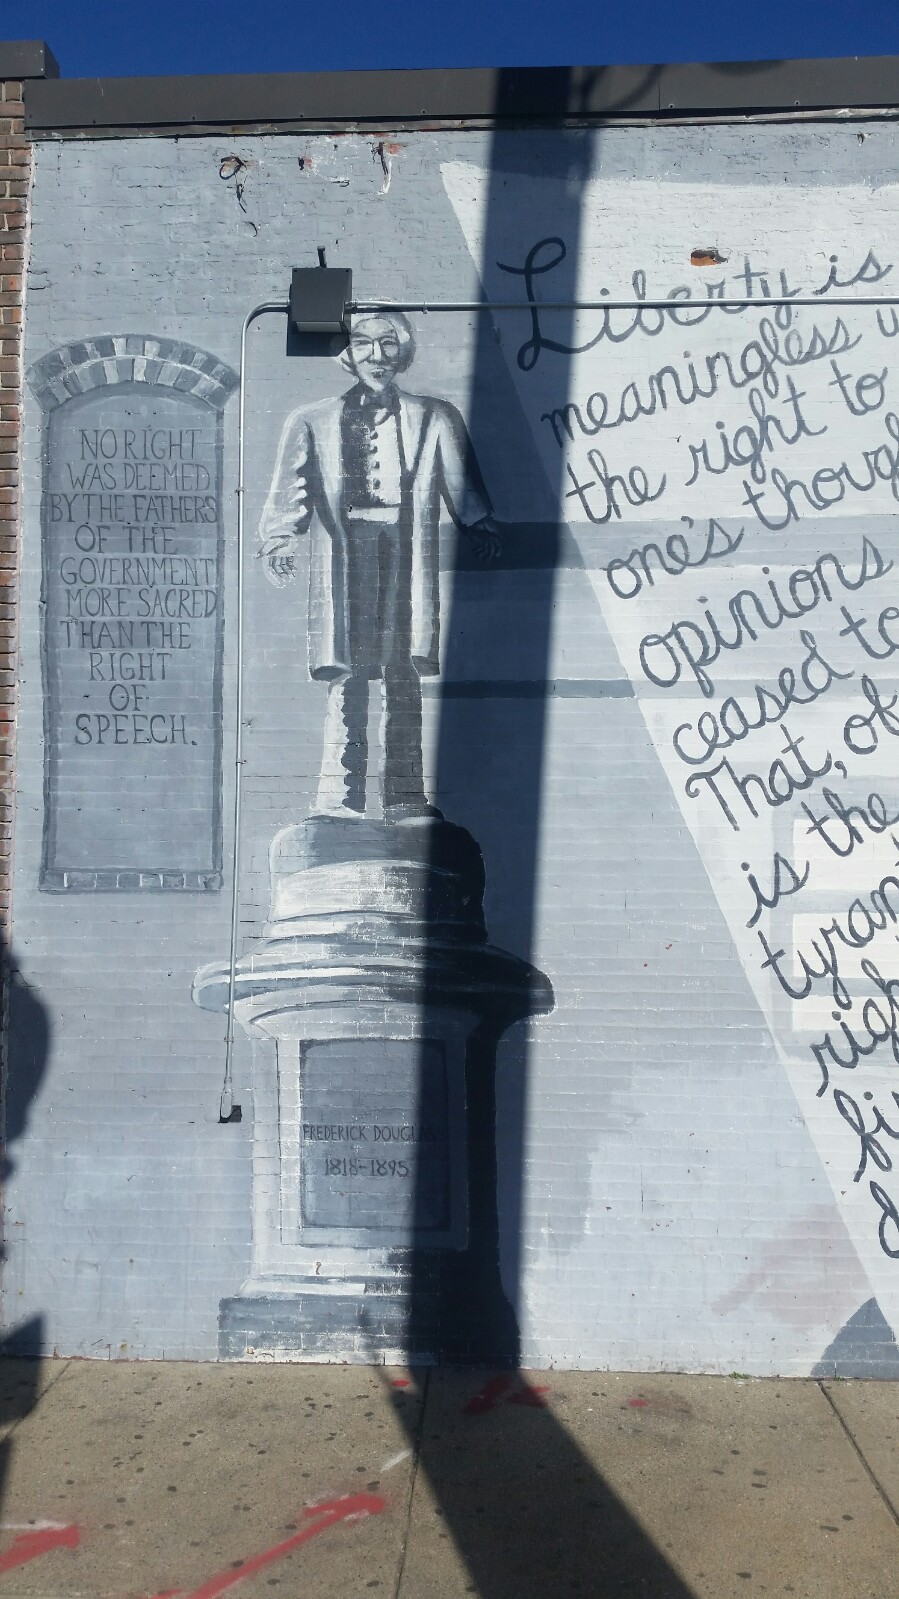 NO RIGHT
WAS DEEMED
BY THE FATHERS
OF THE
GOVERNMENT
MORE SACRED
THAN THE
RIGHT
OF
SPEECH.
FREDERICK DOUGLASS
1818-1895
Liberty is
meaningless
the right to
one's thoug
opinions
ceased to
That, of
is the
tyran
righ
fi
d